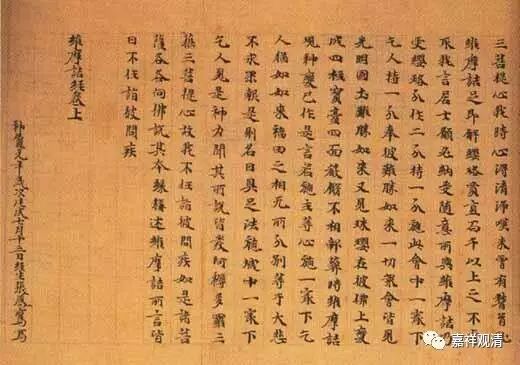 三菩提心我時心得清淨歎未曾有稽首礼
維摩詰足即解瓔珞價直百千以上之不肯
取我言居士願必納受隨意所與維摩詰乃
受瓔珞分作二分持一分施此會中一最下
乞人持一分奉彼難勝如來一切衆會皆見
光明國土難勝如來又見珠瓔在彼佛上變
成四柱寶臺四面嚴飾不相鄣蔽時維摩詰
現神變已作是言若施主等心施一最下乞
人猶如如來福田之相无所分別等于大悲
不求果報是則名曰具足法施城中一最下
乞人見是神力聞其所說皆發阿耨多羅三
藐三菩提心故我不任詣彼問疾如是諸菩
薩各各向佛說其本緣稱述維摩詰所言皆
曰不任詣彼問疾
維摩詰經卷上
神龜元年歲次戊戌七月十三日經生張鳳鸞寫
嘉祥观清